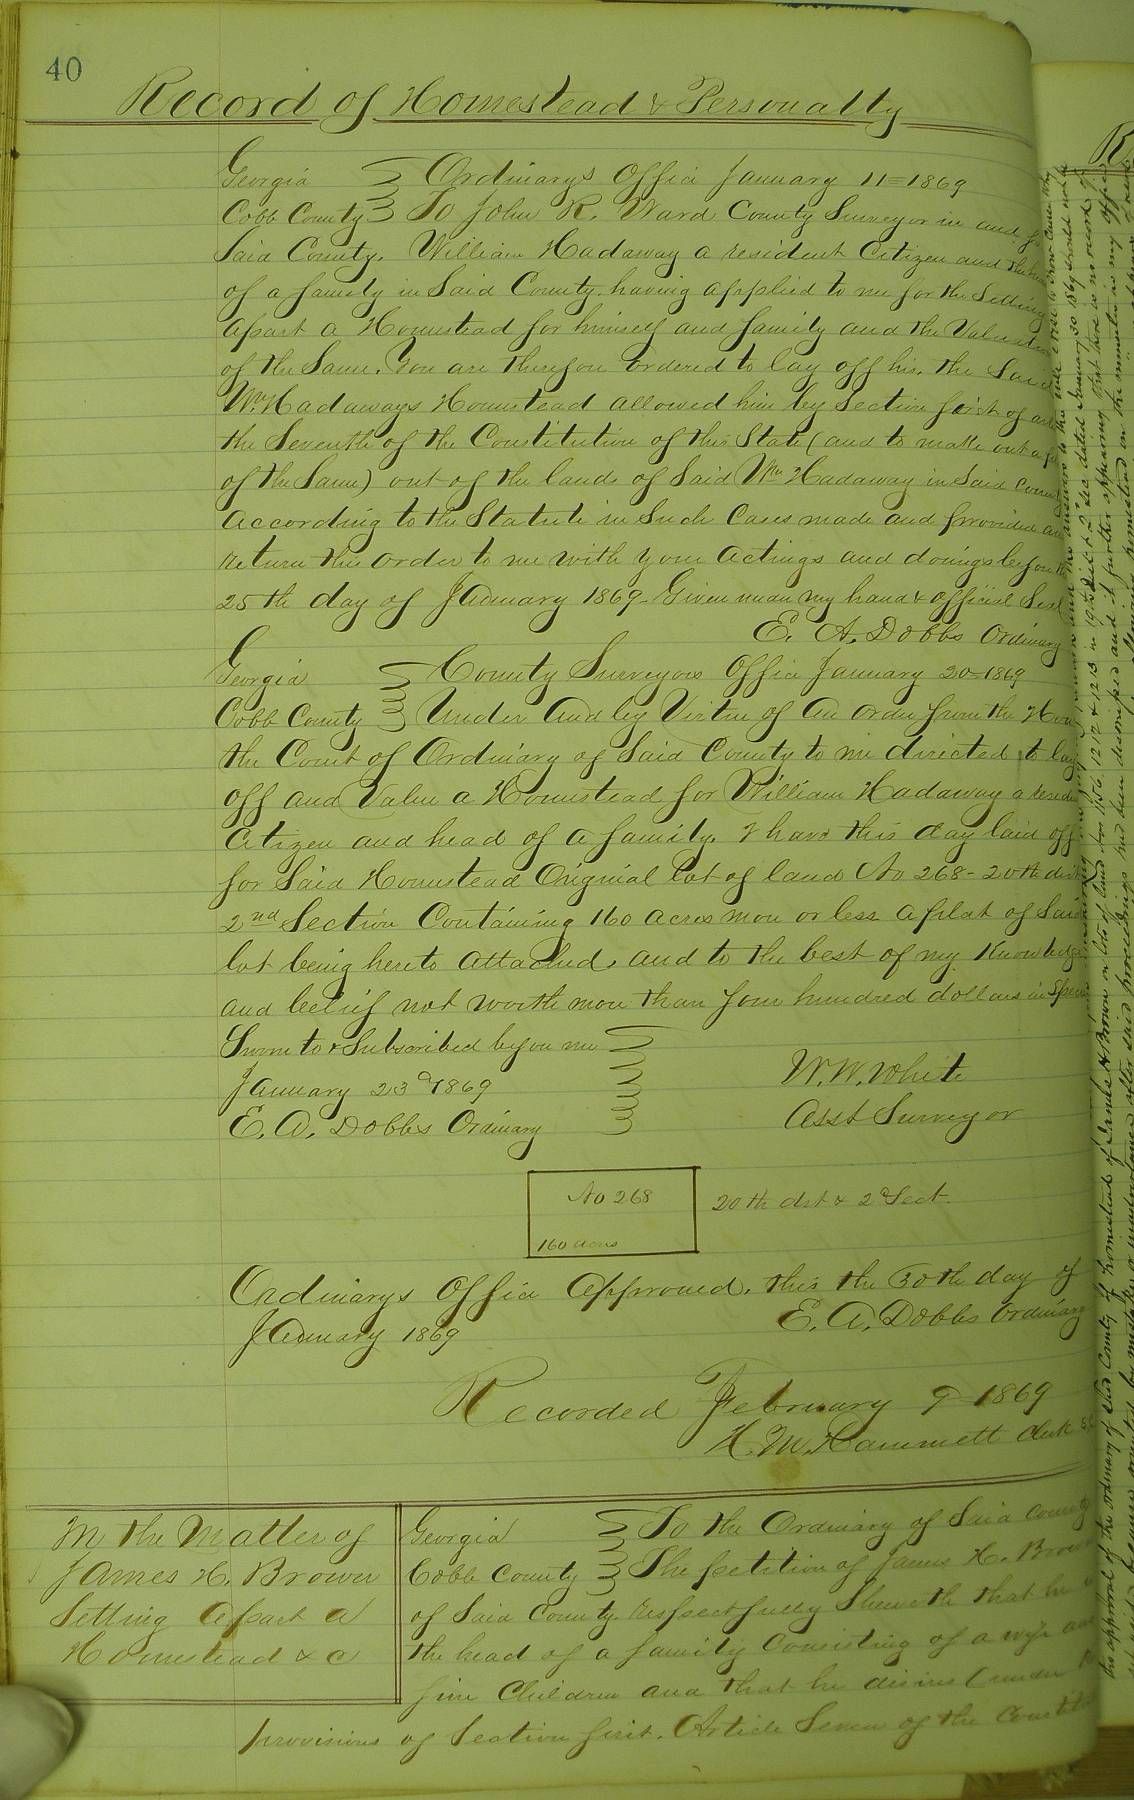 40
Record of Homestead & Personalty
Georgia Ordinarys Office January 11=1869
Cobb County To John R. Ward County Surveyor in and
Said County. William Hadaway a resident Citizen and the
of a family in Said County having applied to me for the Setting
apart a Homestead for himself and family and the Valuation
of the Same. You are therefore ordered to lay off his, the Said
Wm Hadaways Homestead allowed him by Section first of
the Seventh of the Constitution of this State (and to make out a
of the Same) out of the lands of Said Wm Hadaway in Said County
According to the Statute in Such Cases made and provided and
return this order to me with your actings and doings before the
25th day of January 1869. Given under my hand & official Seal
E. A. Dobbs Ordinary
Georgia County Surveyors Office January 20=1869
Cobb County Under and by Virtue of an order from the Hon
the Court of Ordinary of Said County to me directed to lay
off and Value a Homestead for William Hadaway a
Citizen and head of a family. I have this day laid off
for Said Homestead Original lot of land No 268 - 20th dist
2nd Section Containing 160 acres more or less a plat of Said
lot being hereto attached, and to the best of my Knowledge
and belief not worth more than four hundred dollars in Specie
Sworn to & Subscribed before me
January 23d 1869 W. W. White
E. A. Dobbs Ordinary Asst Surveyor
No 268 20th dist & 2d Sect.
160 acres
Ordinarys Office Approved, this the 30th day of
January 1869 E. A. Dobbs Ordinary
Recorded February 9 1869
H. M. Hammett Clerk
In the Matter of
James H. Brown
Setting apart a
Homestead & c
Georgia To the Ordinary of Said County
Cobb County The petition of James H. Brown
of Said County respectfully Sheweth that he
the head of a family Consisting of a wife and
five Children and that he desires (under
provisions of Section first. Article Seven of the